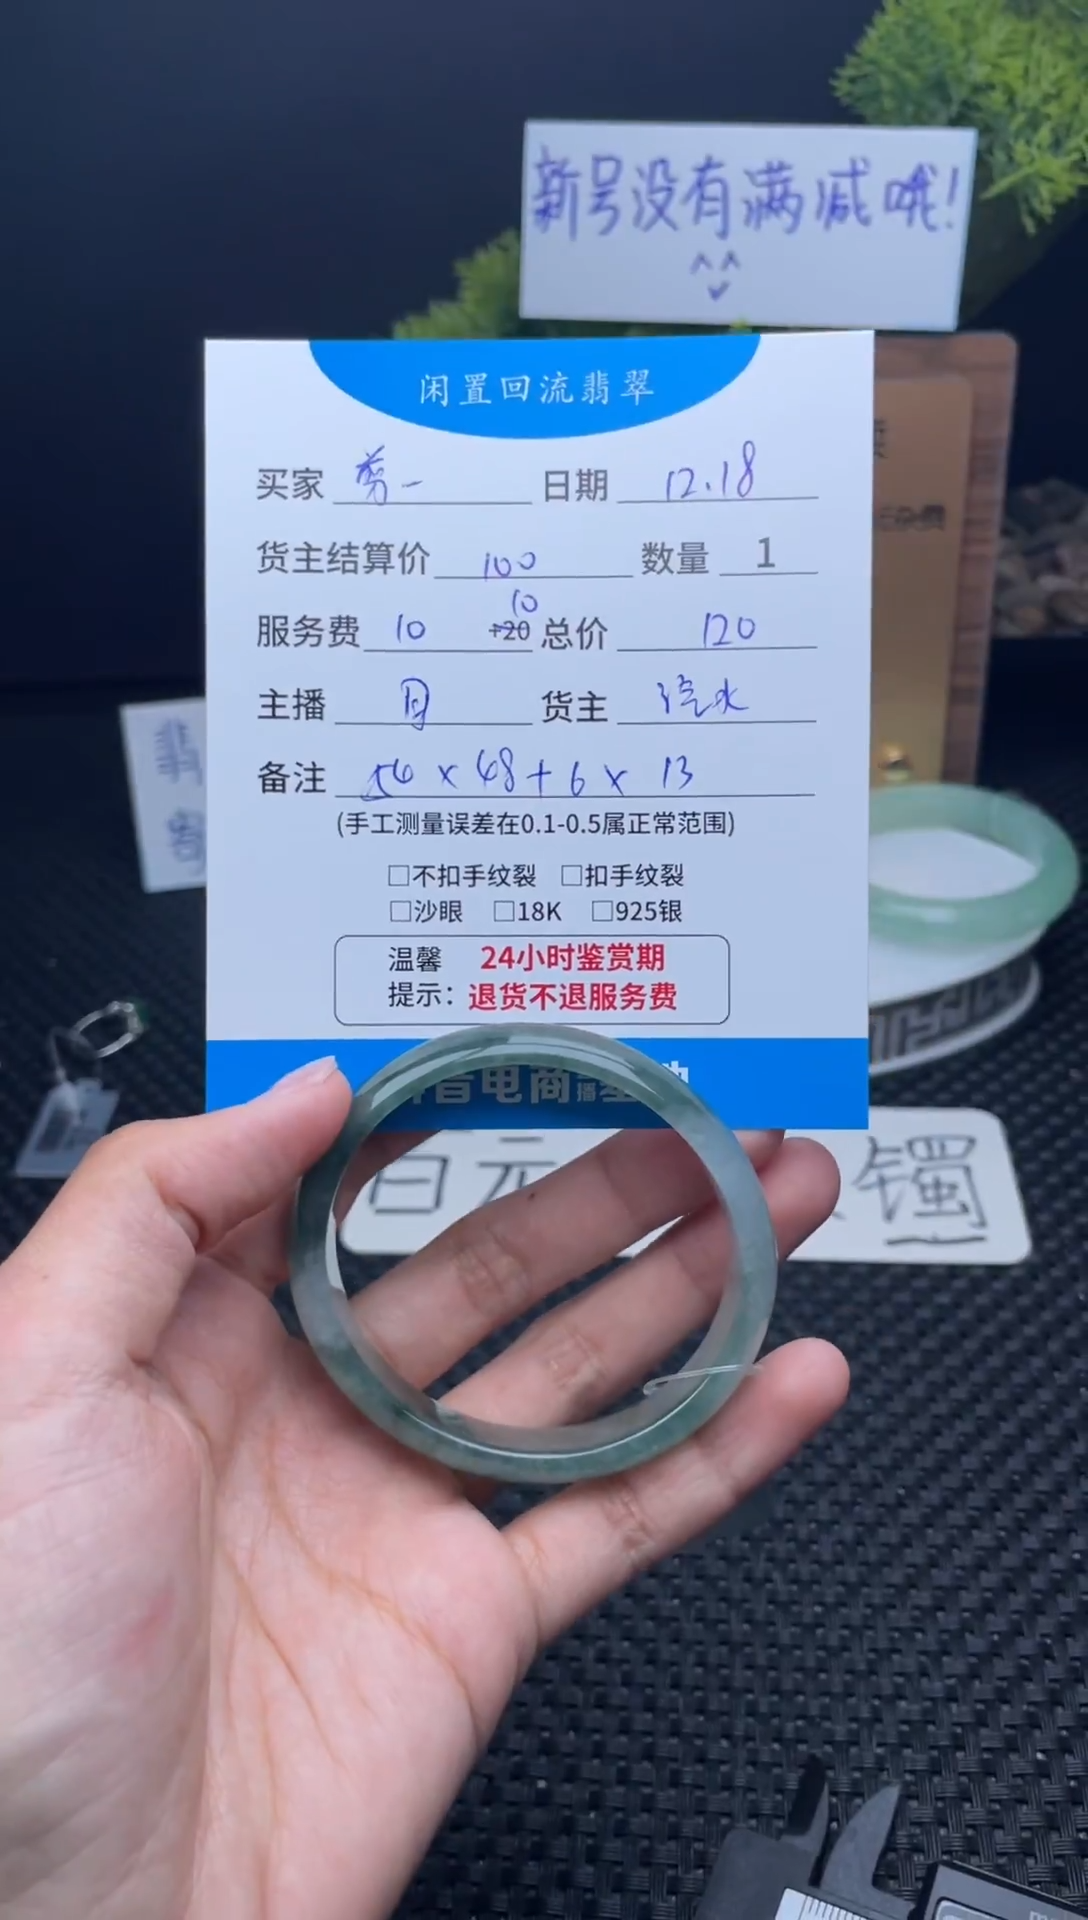 新号没有满减哦!
闲置回流翡翠
买家 剪一 日期 12.18
货主结算价 100 数量 1
10
服务费 10 +20 总价 120
主播 月 货主 汽水
备注 54 x 48 + 6 x 13
(手工测量误差在0.1-0.5属正常范围)
□不扣手纹裂 □扣手纹裂
□沙眼 □18K □925银
温馨 24小时鉴赏期
提示: 退货不退服务费
音电商
播
翡
百元
镯